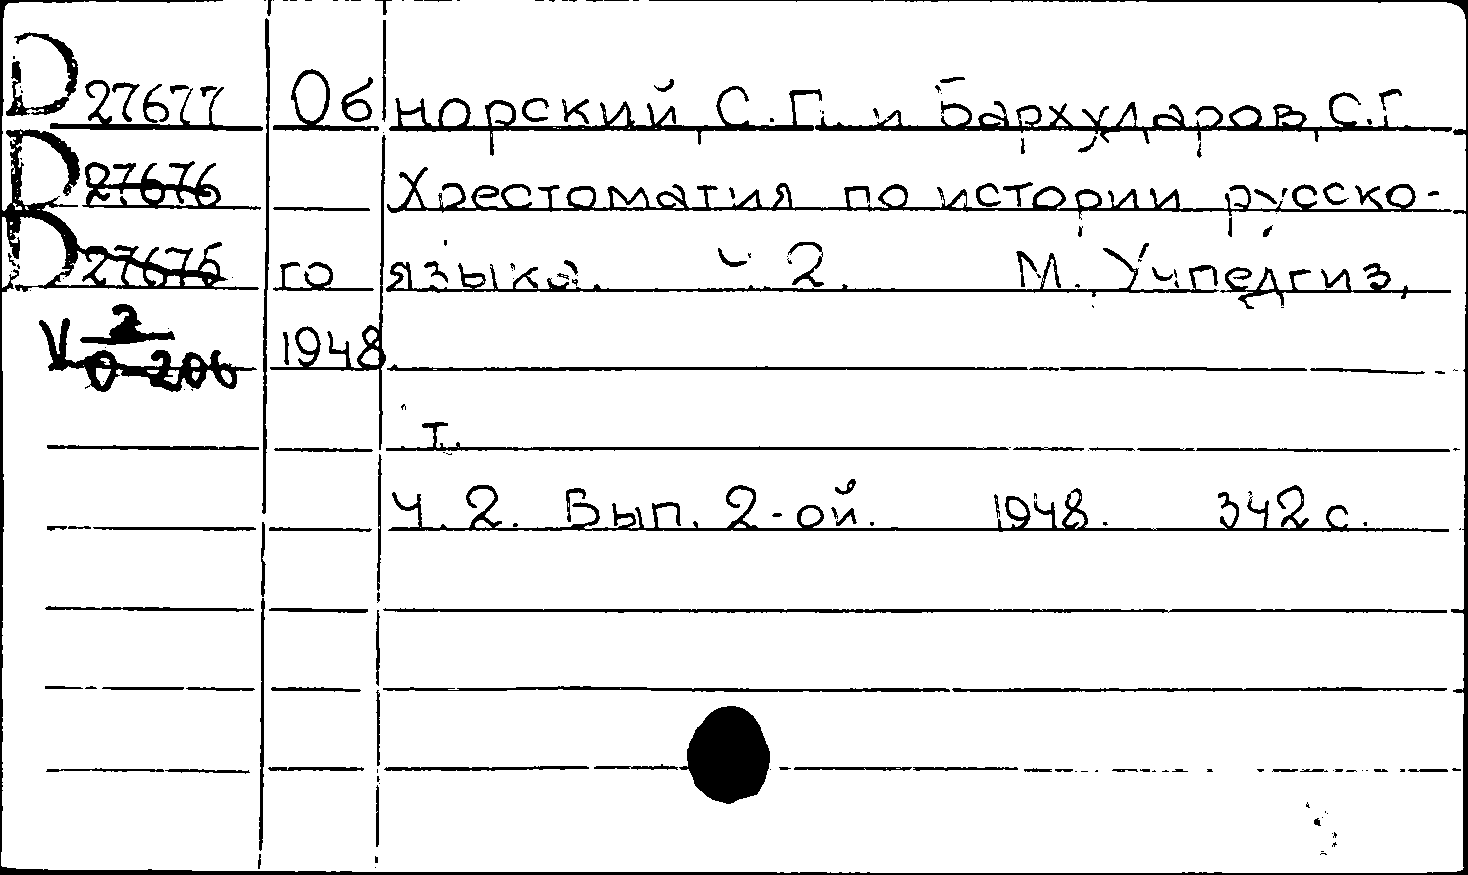 D 27677 Обнорский, С.П. и Бархударов, С.Г.
D 27676 Хрестоматия по истории русско-
D 27675 го языка. ч. 2. М., Учпедгиз,
V 2/0-206 1948.
т.
Ч. 2. Вып. 2-ой. 1948. 342 с.